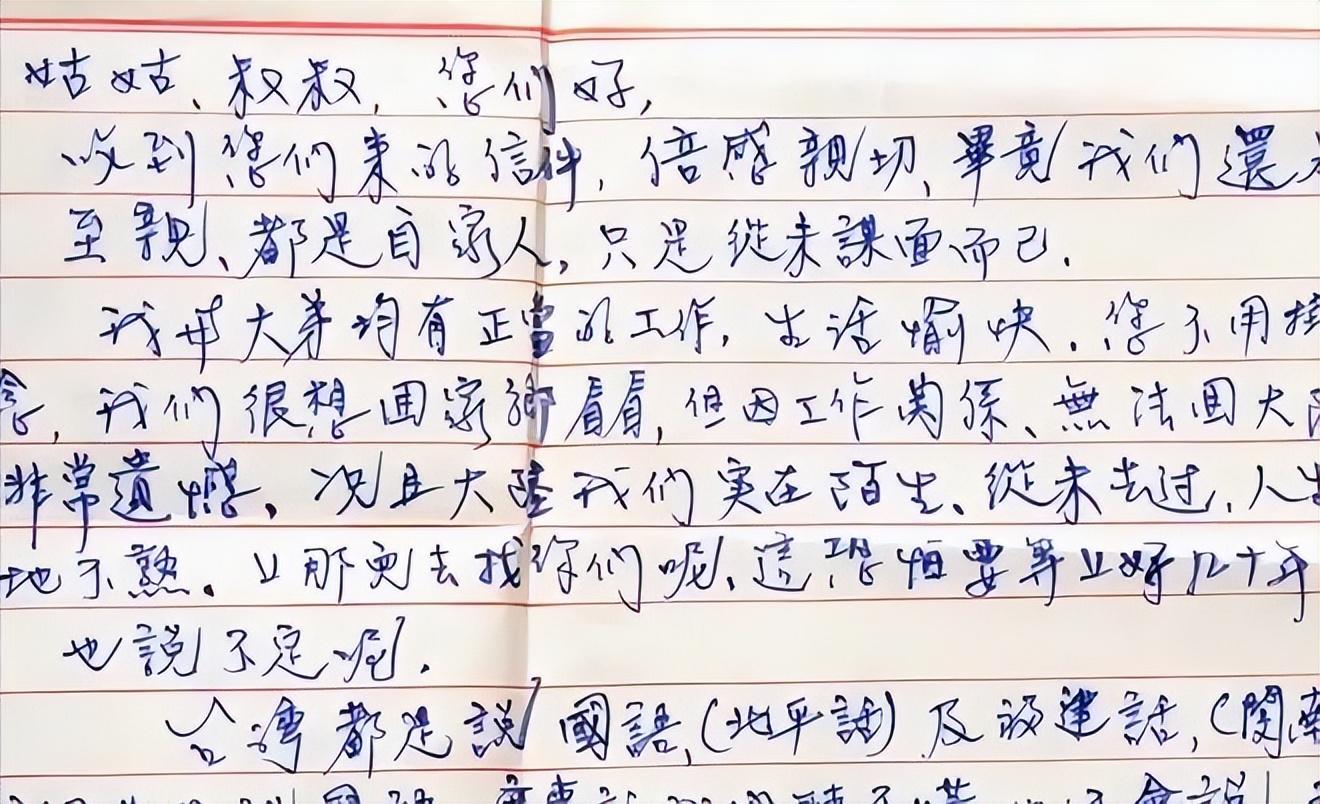 姑姑、叔叔，您们好，
收到您们来的信件，倍感親切，畢竟我们還
至親、都是自家人，只是從未謀面而已．
我母大弟均有正當的工作，生活愉快．您不用掛
念，我们很想回家鄉看看，但因工作関係、無法回大陸
非常遺憾，况且大陸我们实在陌生、從未去过，人生
地不熟．上那兒去找你们呢，這恐怕要等上好几十年
也說不定呢．
台灣都是說國語，(北平話)及福建話，(閩南